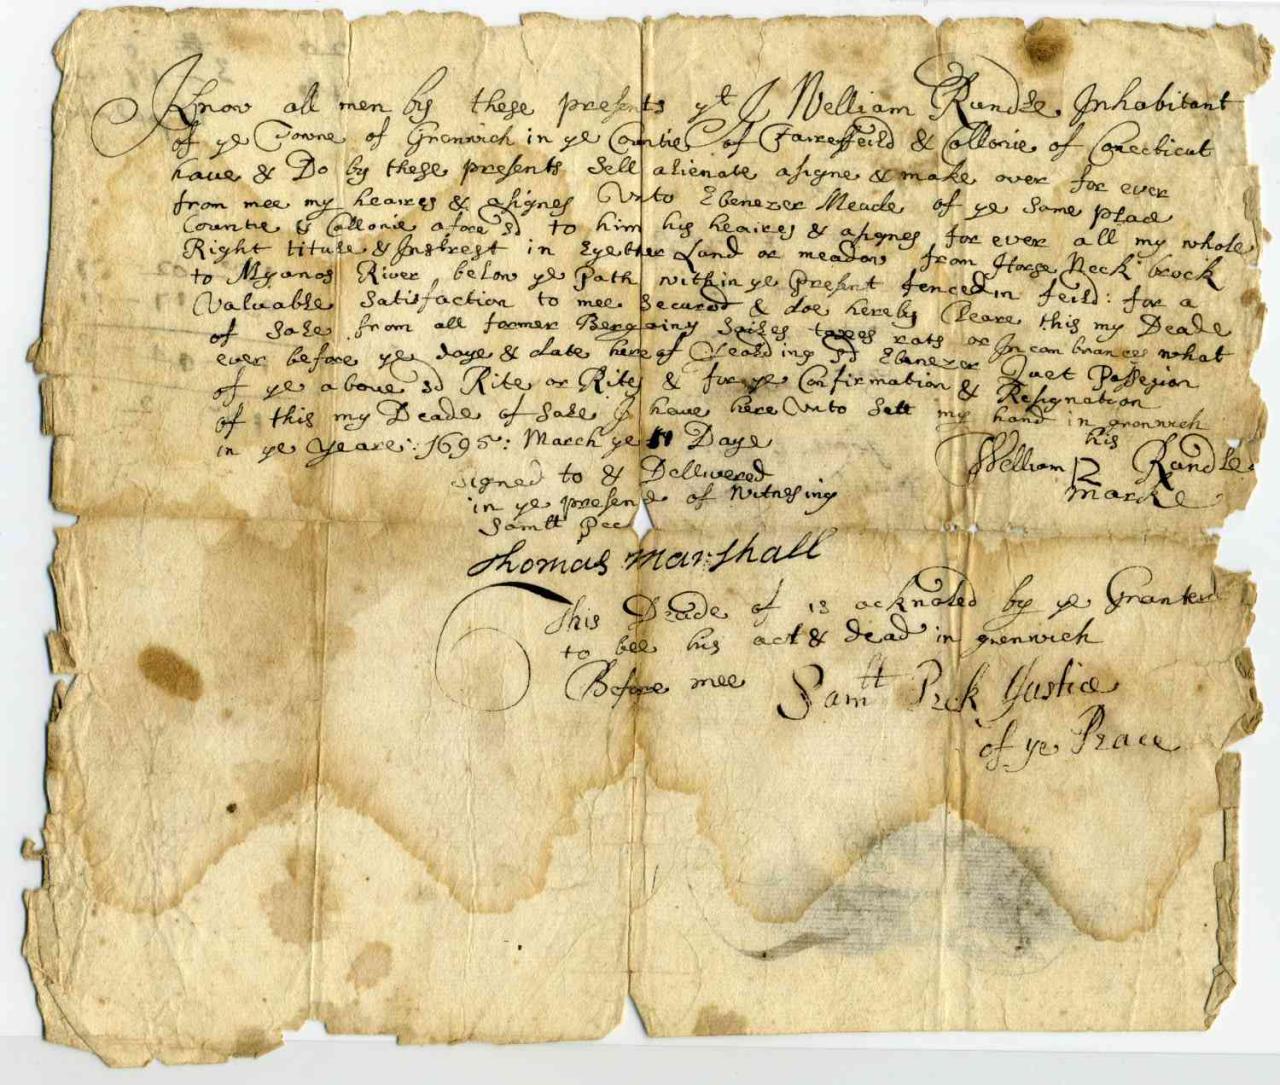 Know all men by these presents yt I William Rundle Inhabitant
of ye Towne of Grenwich in ye Countie of Fairefeild & Collonie of Conecticut
have & Do by these presents sell alienate asigne & make over for ever
from mee my heaires & asignes Unto Ebenezer Meade of ye same place
Countie & Collonie afore sd to him his heaires & asignes for ever all my whole
Right titule & Instrest in Eyether Land or meadow from Horse Neck brock
to Myanos River below ye Path within ye Present fenced in feild: for a
Valuable Satisfaction to mee Secured & doe hereby Cleare this my Deade
of Sale from all former Bergainy Sailes taxes rats or Incombrances what
ever before ye daye & date here of Yealding sd Ebenezer Quet Possesion
of ye above sd Rite or Rites & for ye Confirmation & Resignation
of this my Deade of Sale I have here Unto Sett my hand in grenwich
in ye yeare: 1695: March ye 11 Daye
his
William R Rundle
marke
signed to & Dellivered
in ye presence of Witnesing
Samll Pec
Thomas Marshall
This Deade of is acknoled by ye Granter
to bee his act & dead in grenwich
Before mee Samll Peck Justice
of ye Peace